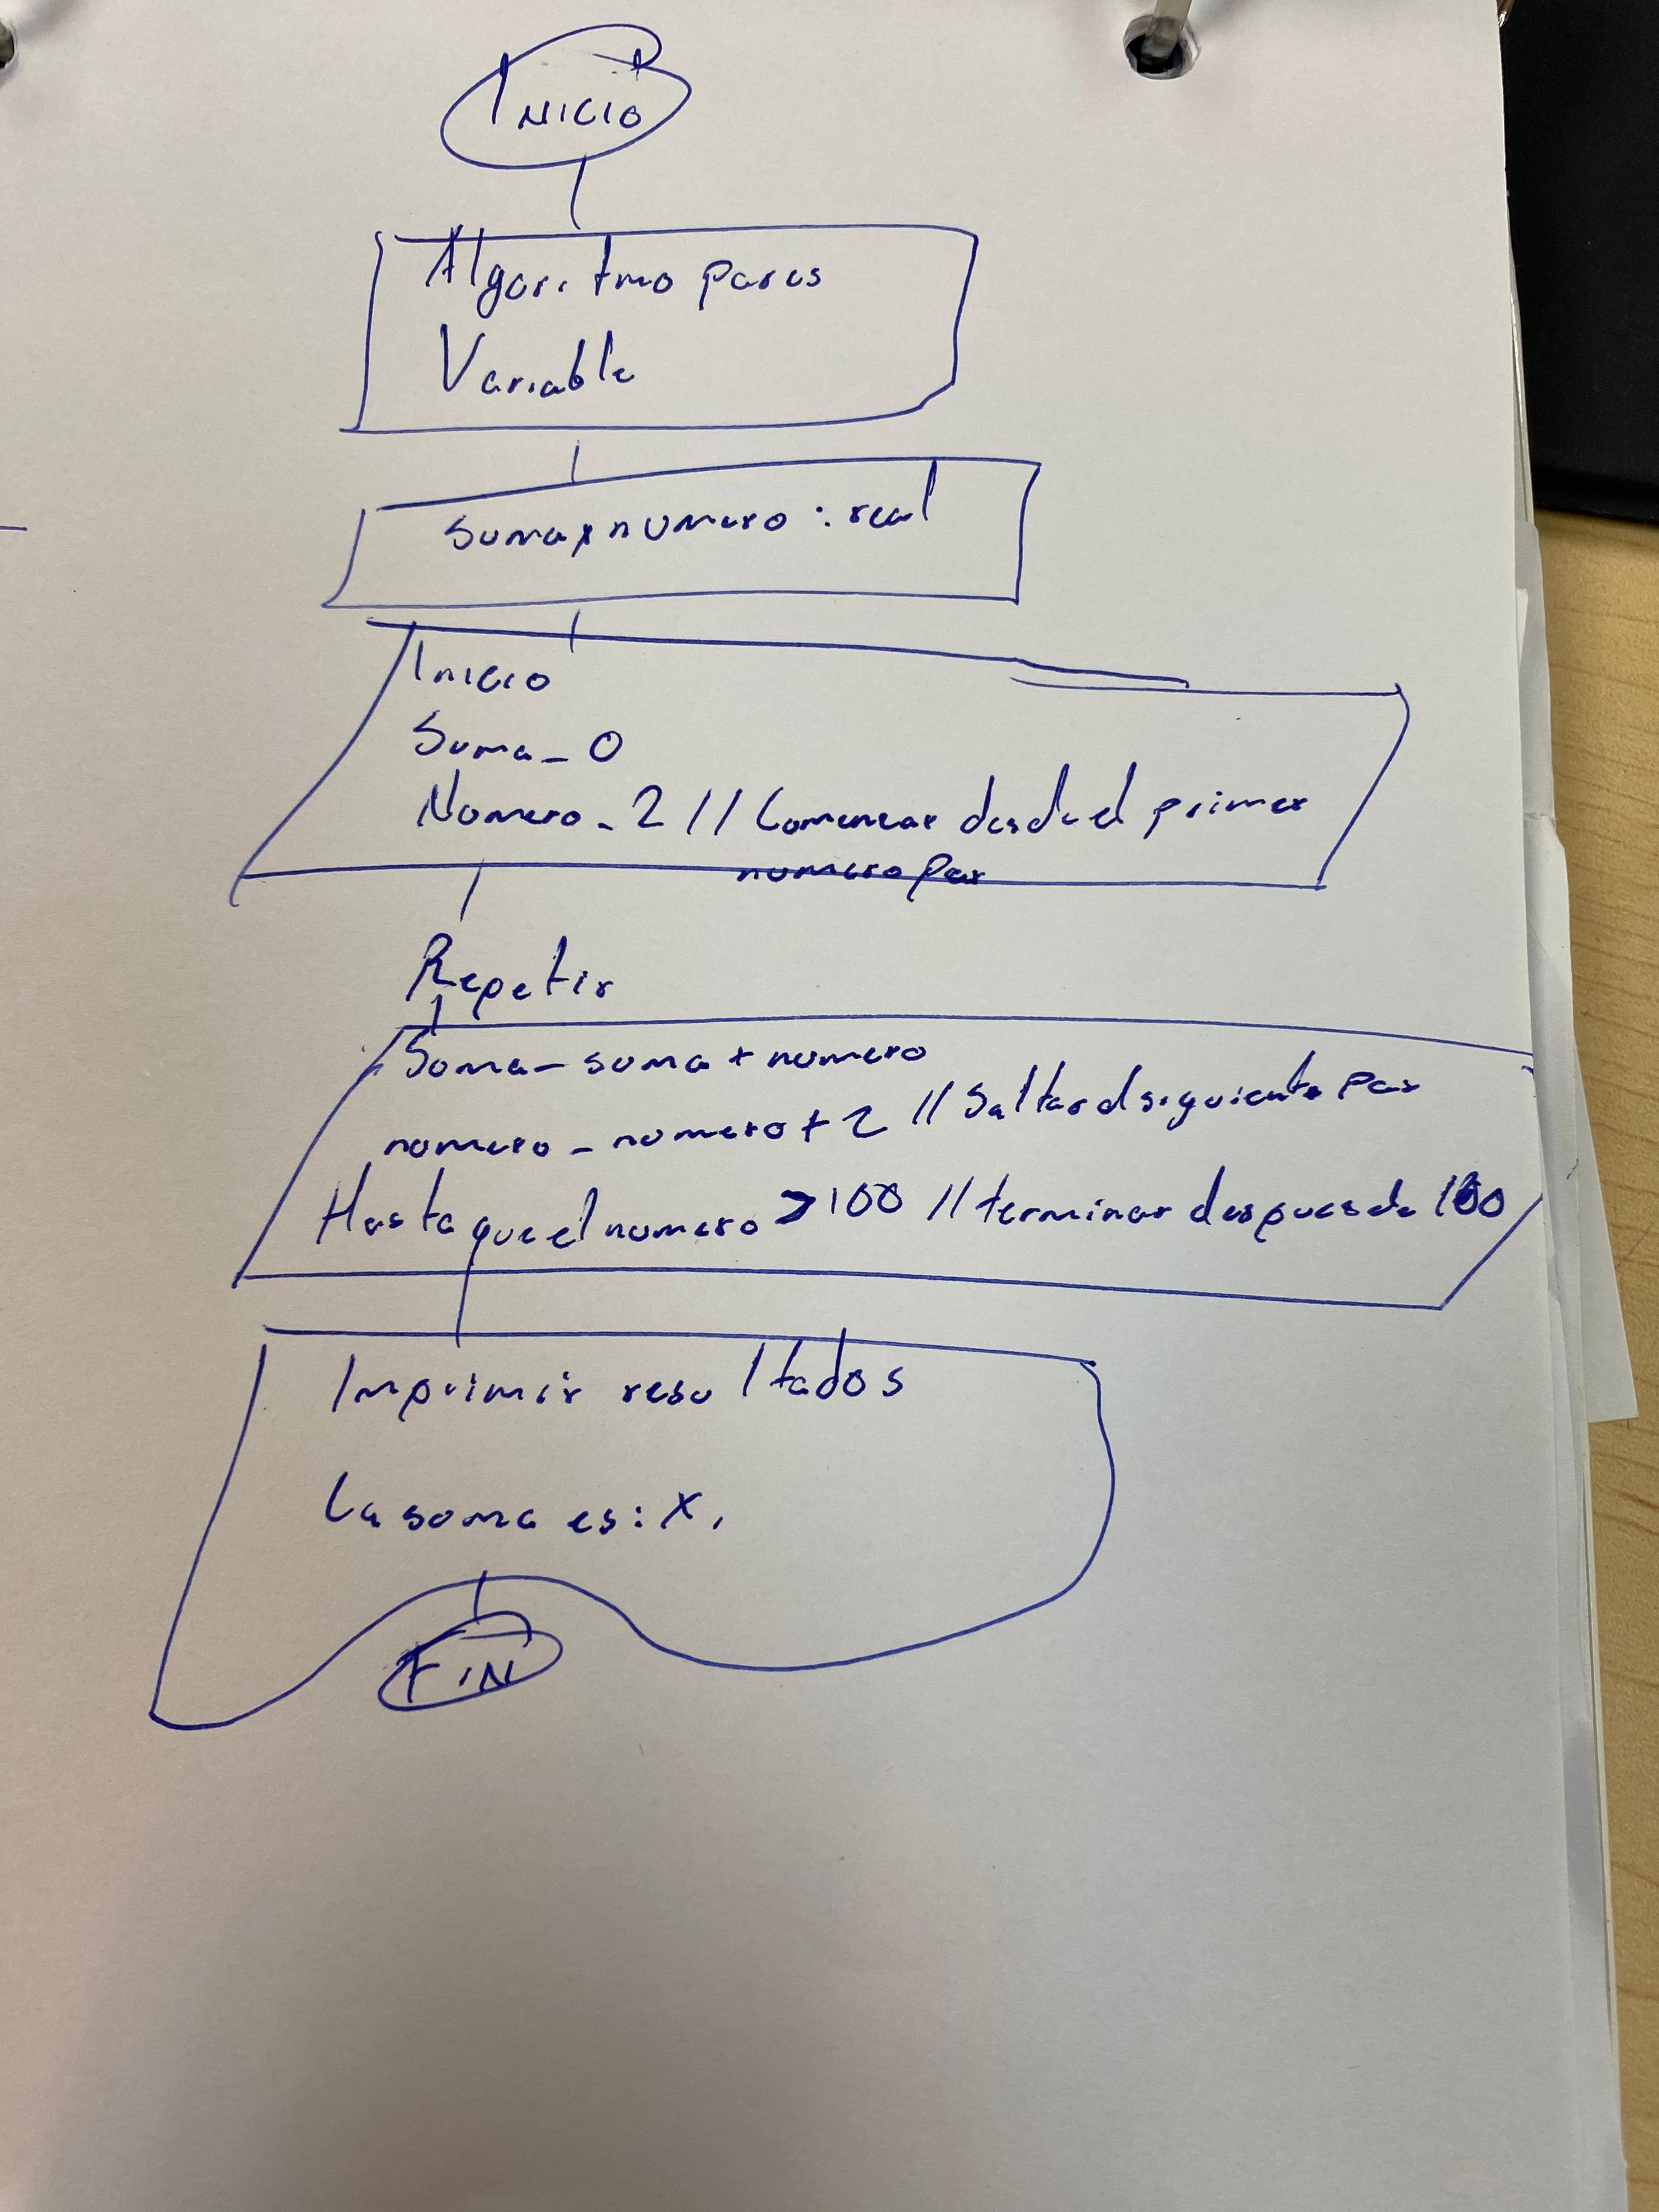 Inicio
Algoritmo pares
Variable
Suma, numero : real
Inicio
Suma_0
Numero_2 // Comenzar desde el primer
numero par
Repetir
Suma_ suma + numero
numero_ numero + 2 // Saltar al siguiente par
Hasta que el numero > 100 // terminar despues de 100
Imprimir resultados
La suma es: x,
FiN